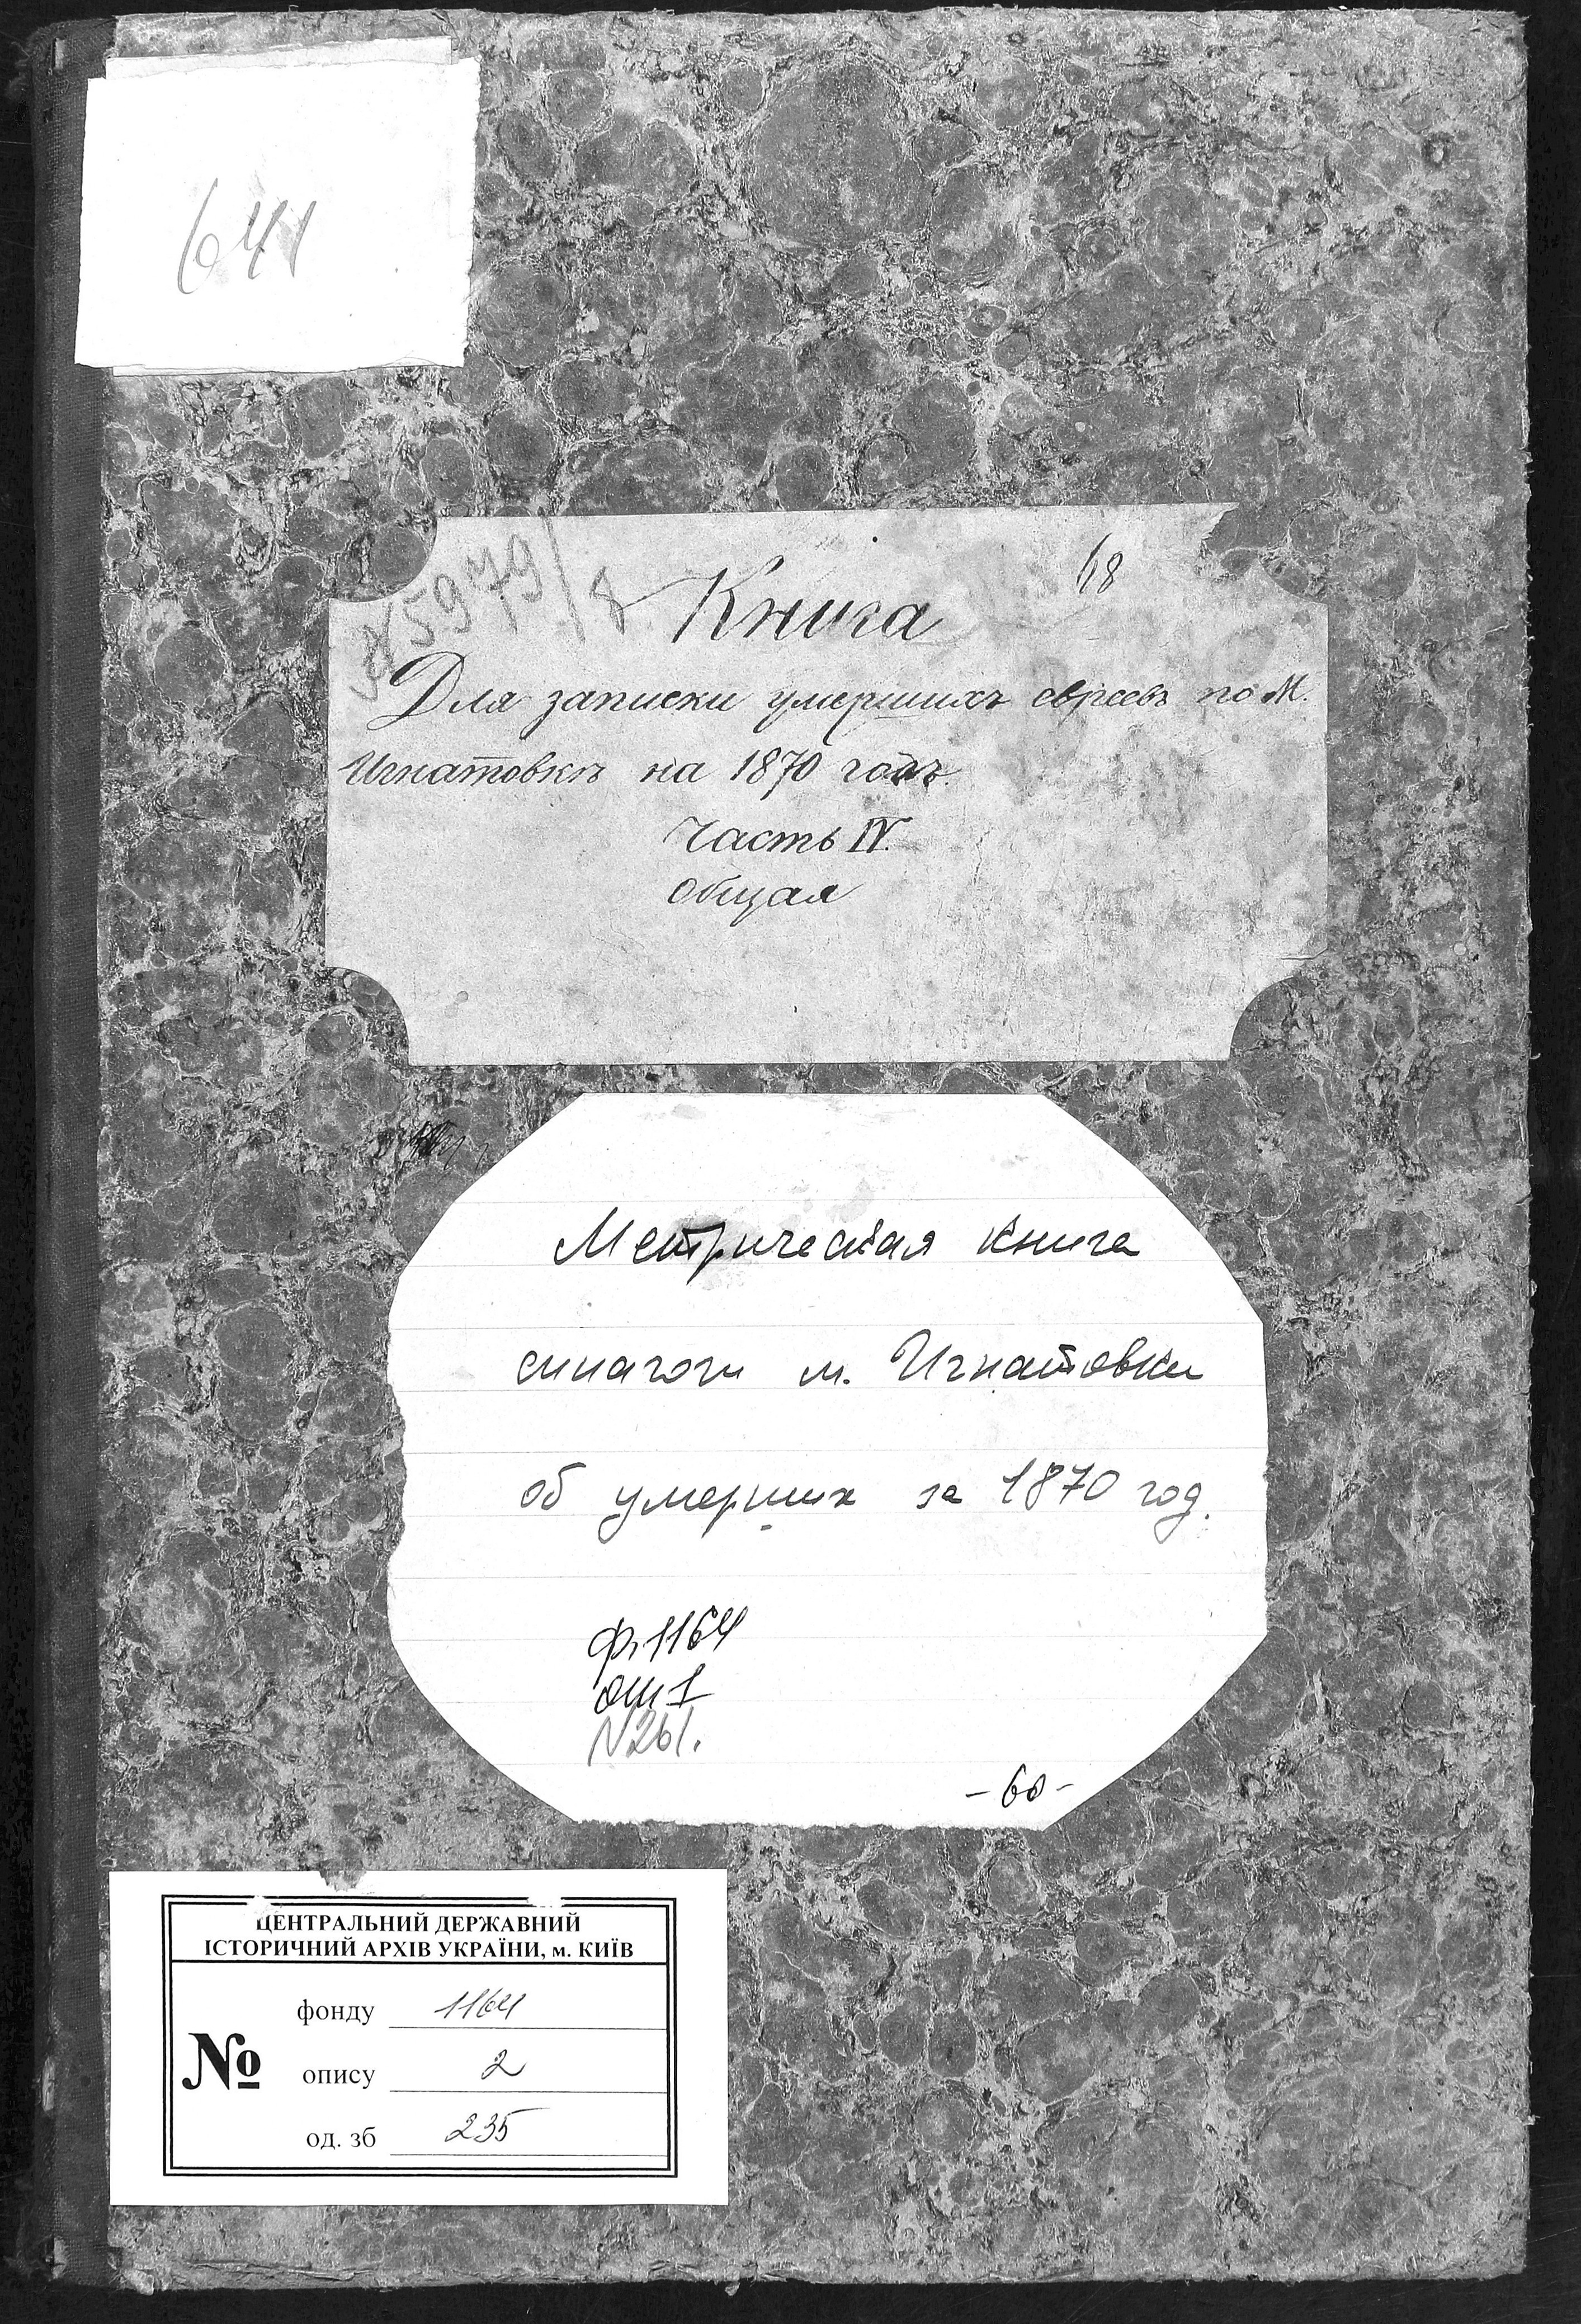 641
68
№5979/8
Книга
Для записки умершихъ евреевъ по М.
Игнатовкѣ на 1870 годъ.
Часть IV.
общая
Метрическая книга
синагоги м. Игнатовки
об умерших за 1870 год.
ф. 1164
оп 1
N261.
-60-
ЦЕНТРАЛЬНИЙ ДЕРЖАВНИЙ
ІСТОРИЧНИЙ АРХІВ УКРАЇНИ, м. КИЇВ
№
фонду 1164
опису 2
од. зб 235